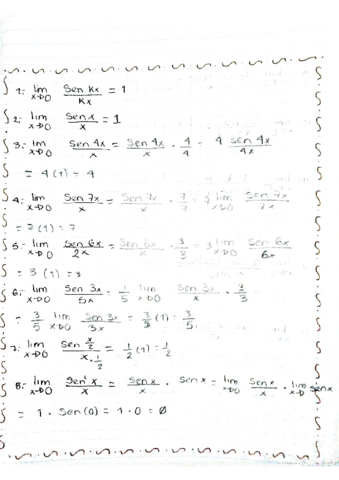 1. lim x→0 Sen Kx / Kx = 1
2. lim x→0 Sen x / x = 1
3. lim x→0 Sen 4x / x = Sen 4x / x · 4/4 = 4 Sen 4x / 4x
= 4(1) = 4
4. lim x→0 Sen 7x / x = Sen 7x / x · 7/7 = 7 lim x→0 Sen 7x / 7x
= 7(1) = 7
5. lim x→0 Sen 6x / 2x = Sen 6x / x · 3/3 = 3 lim x→0 Sen 6x / 6x
= 3(1) = 3
6. lim x→0 Sen 3x / 5x = 1/5 lim x→0 Sen 3x / x · 3/3
= 3/5 lim x→0 Sen 3x / 3x = 3/5 (1) = 3/5
7. lim x→0 Sen x/2 / x · 1/2 = 1/2 (1) = 1/2
8. lim x→0 Sen² x / x = Sen x / x · Sen x = lim x→0 Sen x / x · lim x→0 Sen x
= 1 · Sen(0) = 1 · 0 = 0